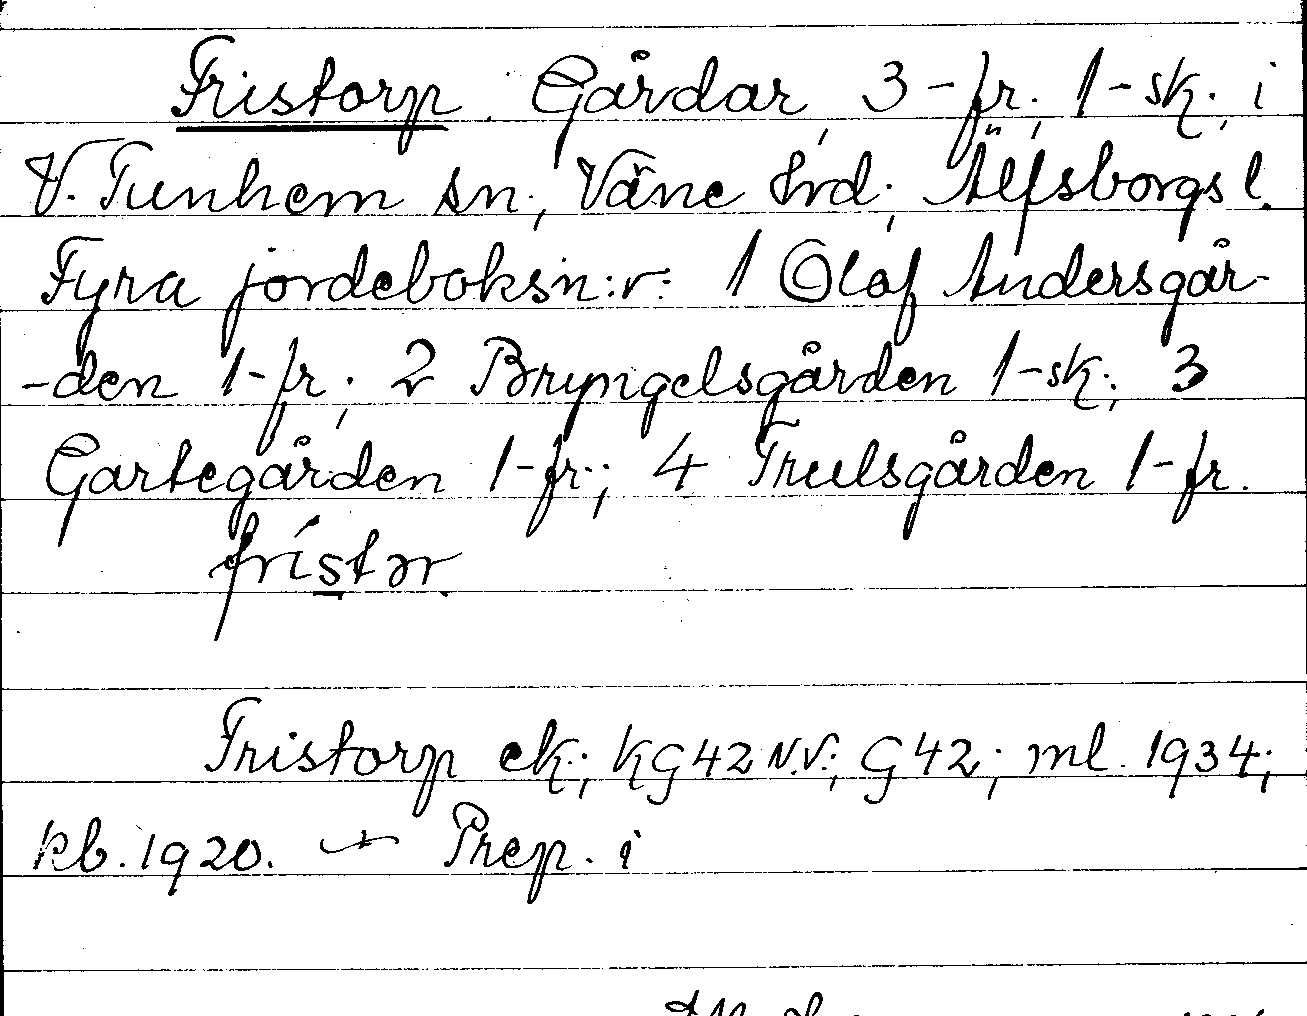 Fristorp. Gårdar, 3-fr., 1-sk., i
V. Tunhem sn., Väne hrd., Älfsborgs l.
Fyra jordeboksn:r: 1 Olof Andersgår-
-den 1-fr.; 2 Bryngelsgården 1-sk.; 3
Gartegården 1-fr.; 4 Trulsgården 1-fr.
fristər
Fristorp ek.; KG42 N.V.; G42; ml. 1934;
kb. 1920. — Prep. i